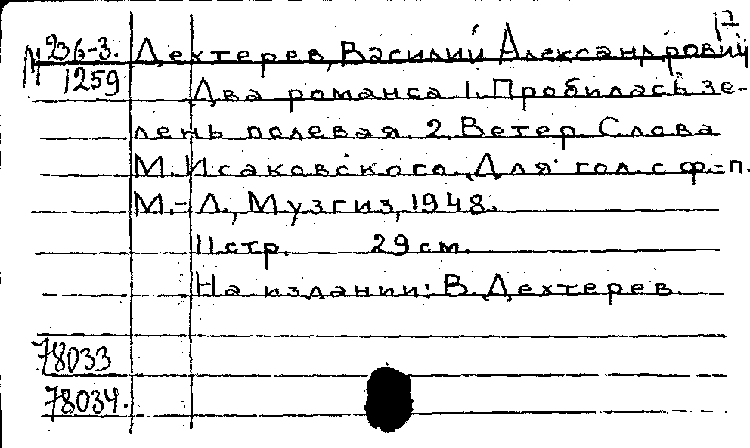 7
М 236-3. Дехтерев, Василий Александрович
1259
Два романса 1. Пробилась зе-
лень полевая. 2. Ветер. Слова
М. Исаковского. Для гол. с ф.-п.
М.-Л., Музгиз, 1948.
11 стр. 29 см.
На издании: В. Дехтерев.
78033
78034.